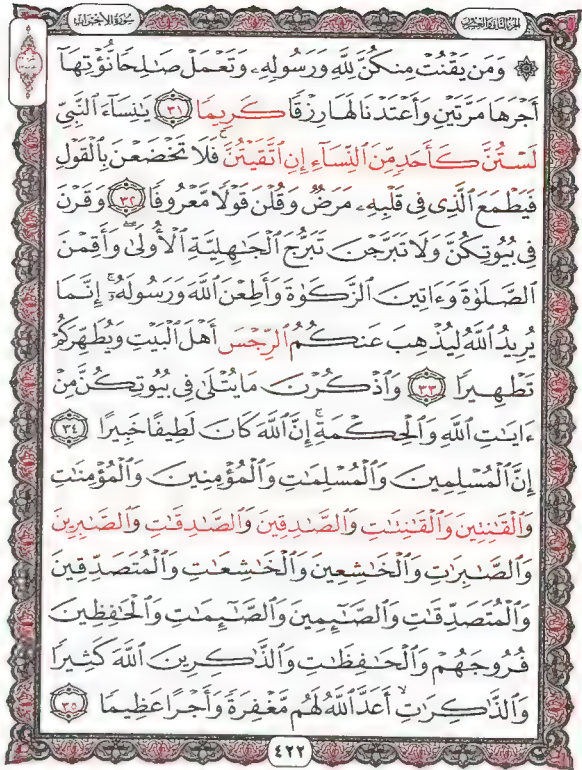 الجزء الثاني والعشرون
سورة الأحزاب
۞ وَمَن يَقْنُتْ مِنكُنَّ لِلَّهِ وَرَسُولِهِۦ وَتَعْمَلْ صَٰلِحًا نُّؤْتِهَآ
أَجْرَهَا مَرَّتَيْنِ وَأَعْتَدْنَا لَهَا رِزْقًا كَرِيمًا ٣١ يَٰنِسَآءَ ٱلنَّبِيِّ
لَسْتُنَّ كَأَحَدٍ مِّنَ ٱلنِّسَآءِ إِنِ ٱتَّقَيْتُنَّۚ فَلَا تَخْضَعْنَ بِٱلْقَوْلِ
فَيَطْمَعَ ٱلَّذِى فِى قَلْبِهِۦ مَرَضٌ وَقُلْنَ قَوْلًا مَّعْرُوفًا ٣٢ وَقَرْنَ
فِى بُيُوتِكُنَّ وَلَا تَبَرَّجْنَ تَبَرُّجَ ٱلْجَٰهِلِيَّةِ ٱلْأُولَىٰۖ وَأَقِمْنَ
ٱلصَّلَوٰةَ وَءَاتِينَ ٱلزَّكَوٰةَ وَأَطِعْنَ ٱللَّهَ وَرَسُولَهُۥٓۚ إِنَّمَا
يُرِيدُ ٱللَّهُ لِيُذْهِبَ عَنكُمُ ٱلرِّجْسَ أَهْلَ ٱلْبَيْتِ وَيُطَهِّرَكُمْ
تَطْهِيرًا ٣٣ وَٱذْكُرْنَ مَا يُتْلَىٰ فِى بُيُوتِكُنَّ مِنْ
ءَايَٰتِ ٱللَّهِ وَٱلْحِكْمَةِۚ إِنَّ ٱللَّهَ كَانَ لَطِيفًا خَبِيرًا ٣٤
إِنَّ ٱلْمُسْلِمِينَ وَٱلْمُسْلِمَٰتِ وَٱلْمُؤْمِنِينَ وَٱلْمُؤْمِنَٰتِ
وَٱلْقَٰنِتِينَ وَٱلْقَٰنِتَٰتِ وَٱلصَّٰدِقِينَ وَٱلصَّٰدِقَٰتِ وَٱلصَّٰبِرِينَ
وَٱلصَّٰبِرَٰتِ وَٱلْخَٰشِعِينَ وَٱلْخَٰشِعَٰتِ وَٱلْمُتَصَدِّقِينَ
وَٱلْمُتَصَدِّقَٰتِ وَٱلصَّٰٓئِمِينَ وَٱلصَّٰٓئِمَٰتِ وَٱلْحَٰفِظِينَ
فُرُوجَهُمْ وَٱلْحَٰفِظَٰتِ وَٱلذَّٰكِرِينَ ٱللَّهَ كَثِيرًا
وَٱلذَّٰكِرَٰتِ أَعَدَّ ٱللَّهُ لَهُم مَّغْفِرَةً وَأَجْرًا عَظِيمًا ٣٥
٤٢٢